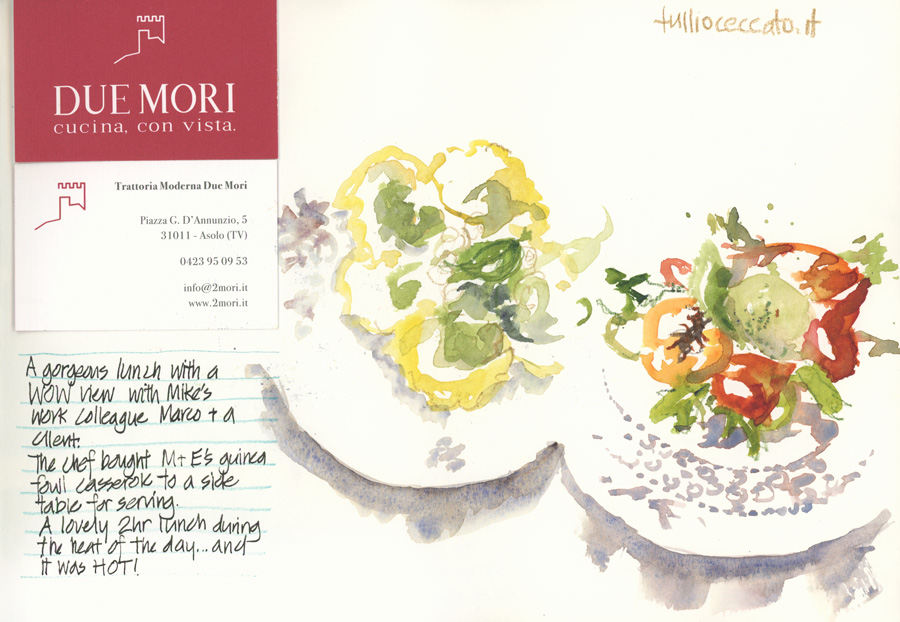 DUE MORI
cucina, con vista.
Trattoria Moderna Due Mori
Piazza G. D'Annunzio, 5
31011 - Asolo (TV)
0423 95 09 53
info@2mori.it
www.2mori.it
tullioceccato.it
A gorgeous lunch with a
WOW view with Mike's
work colleague Marco + a
client.
The chef bought M+E's guinea
foul casserole to a side
table for serving.
A lovely 2hr lunch during
the heat of the day...and
it was HOT!